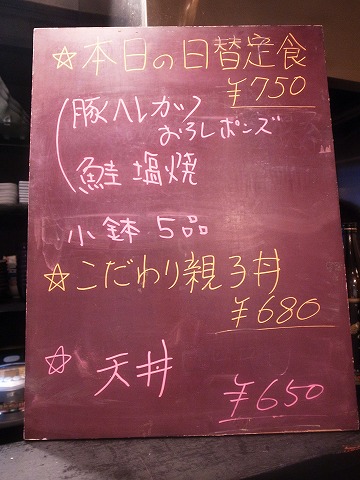 ☆本日の日替定食
¥750
豚ヘレカツ
おろしポンズ
鮭塩焼
小鉢 5品
☆こだわり親子丼
¥680
☆ 天丼
¥650